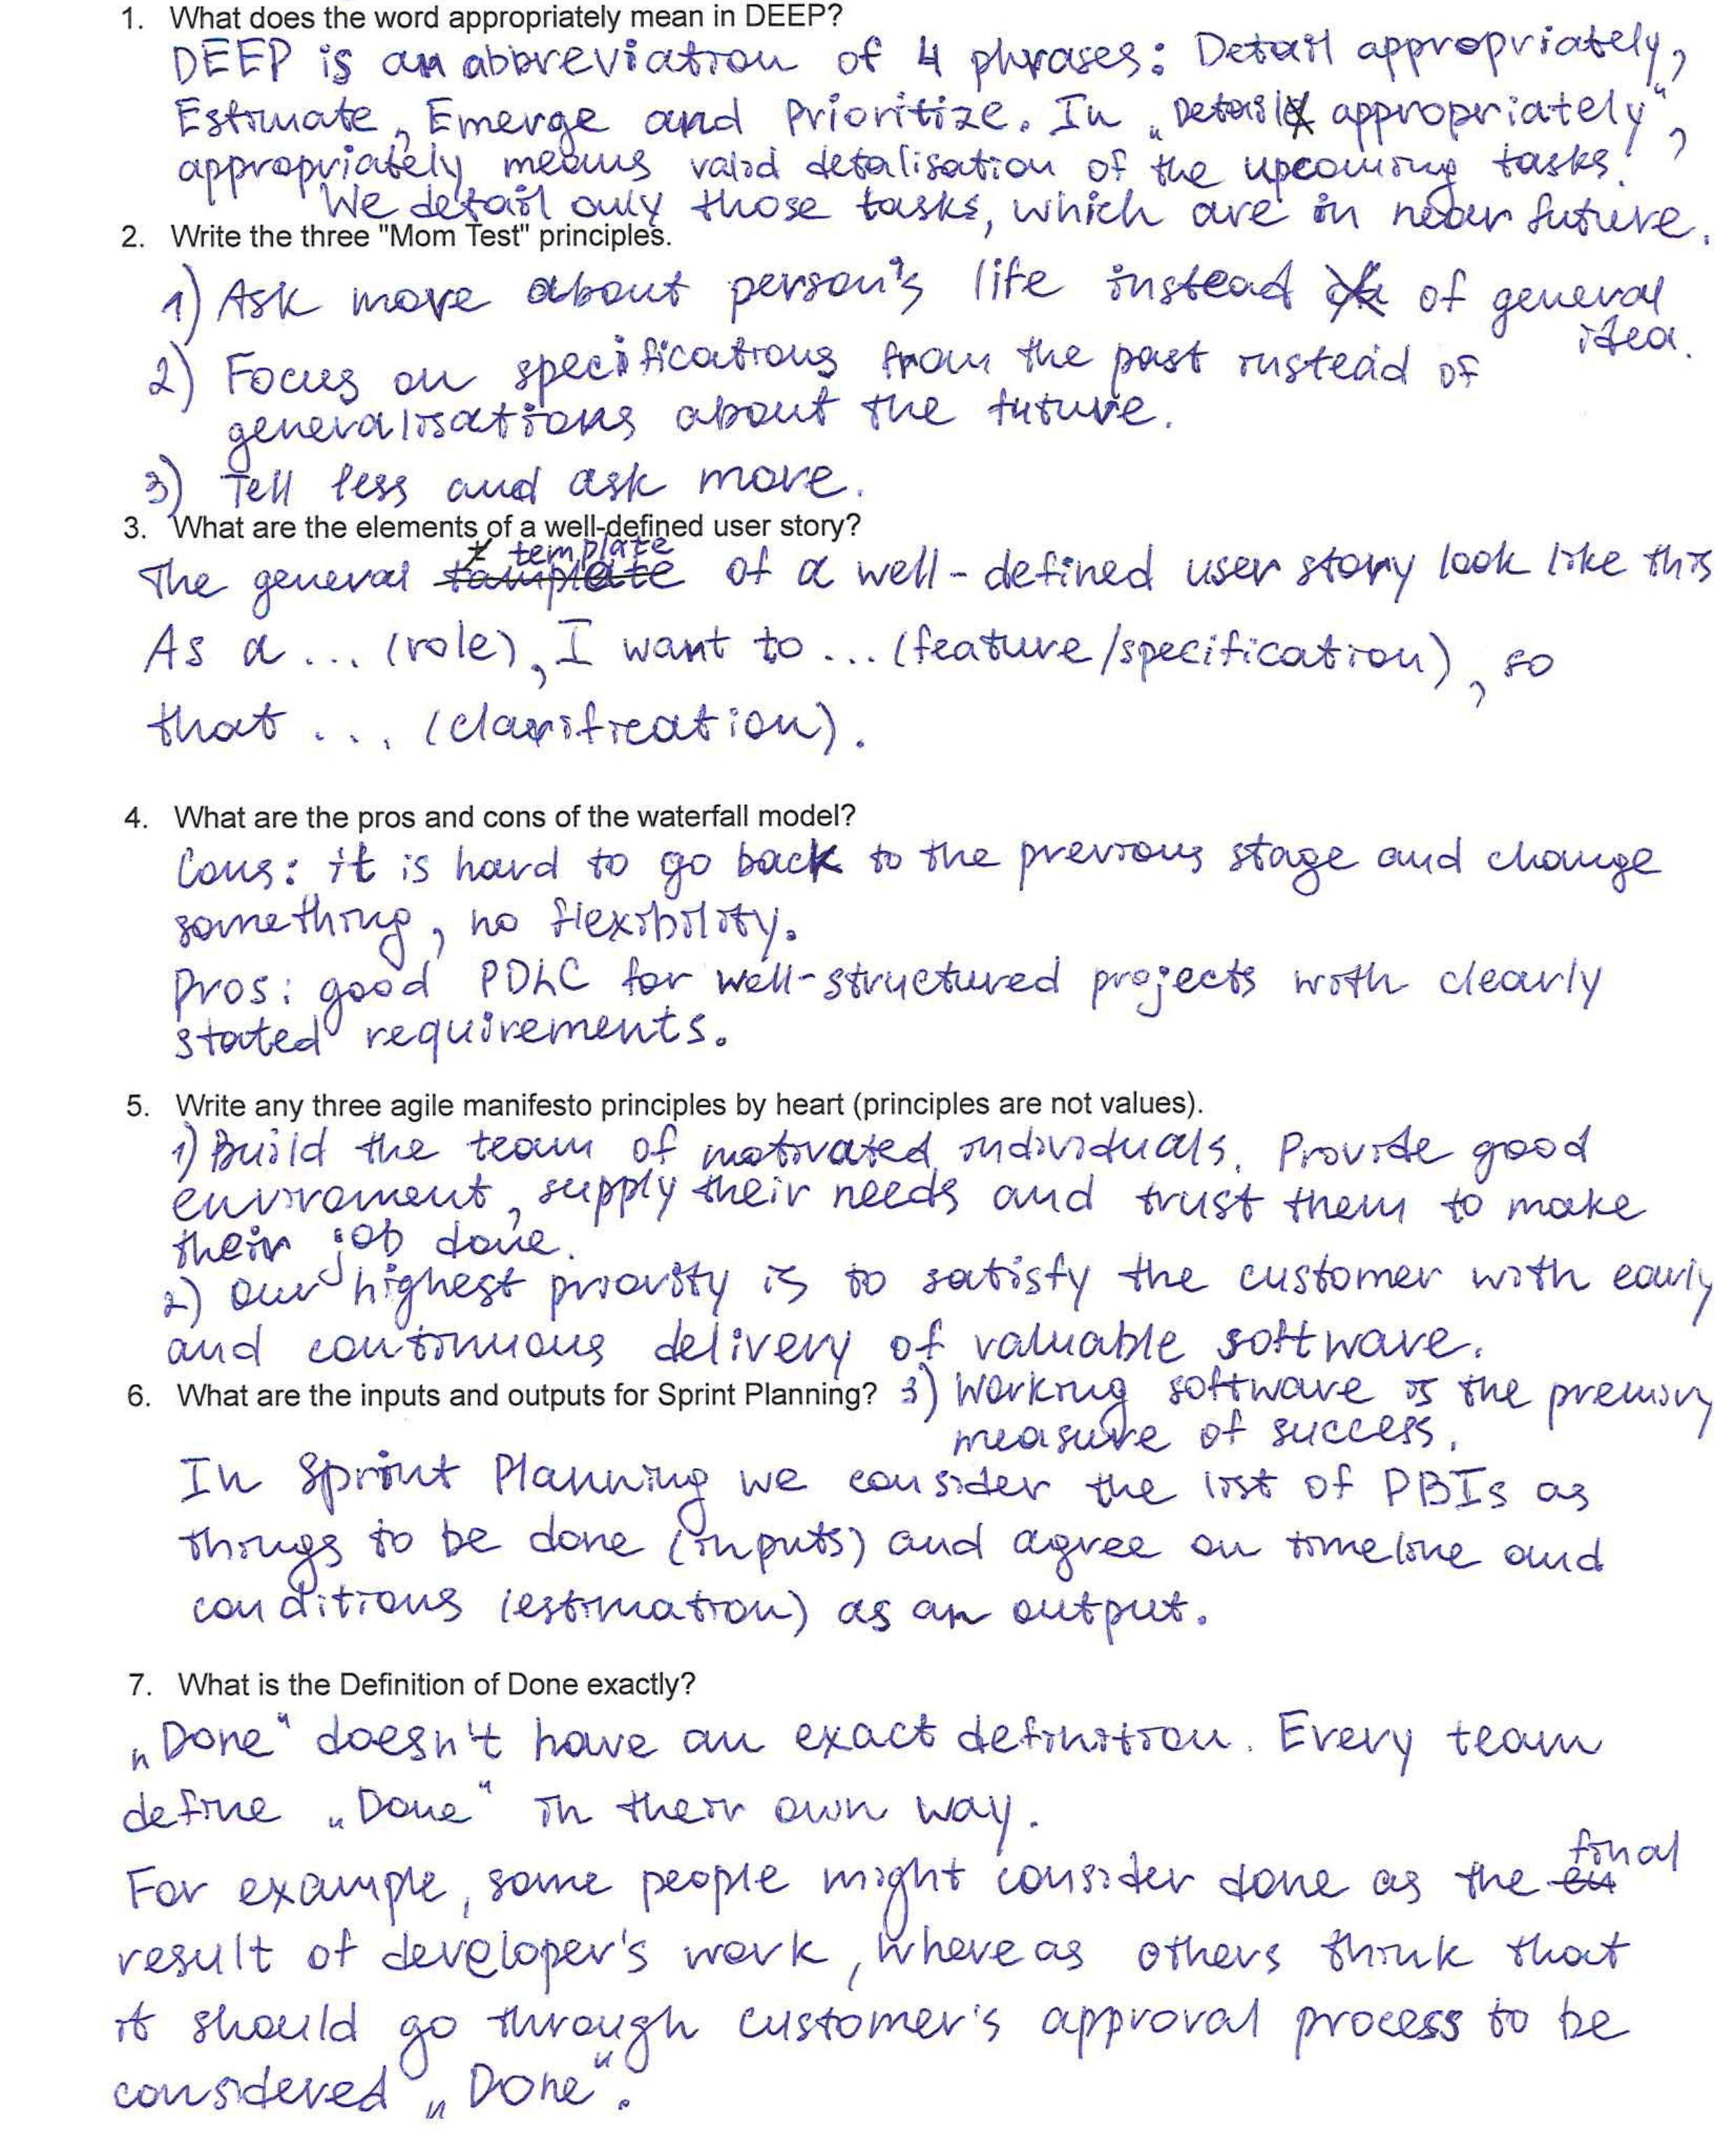 1. What does the word appropriately mean in DEEP?
DEEP is an abbreviation of 4 phrases: Detail appropriately,
Estimate, Emerge and Prioritize. In „Detail appropriately“,
appropriately means valid detalisation of the upcoming tasks.
We detail only those tasks, which are in near future.
2. Write the three "Mom Test" principles.
1) Ask more about person's life instead of general
idea.
2) Focus on specifications from the past instead of
generalisations about the future.
3) Tell less and ask more.
3. What are the elements of a well-defined user story?
template
The general tamplate of a well-defined user story look like this
As a ... (role), I want to ... (feature/specification), so
that ... (clarification).
4. What are the pros and cons of the waterfall model?
Cons: it is hard to go back to the previous stage and change
something, no flexibility.
Pros: good PDLC for well-structured projects with clearly
stated requirements.
5. Write any three agile manifesto principles by heart (principles are not values).
1) Build the team of motivated individuals. Provide good
enviroment, supply their needs and trust them to make
their job done.
2) Our highest priority is to satisfy the customer with early
and continuous delivery of valuable software.
6. What are the inputs and outputs for Sprint Planning? 3) Working software is the premiry
measure of success.
In Sprint Planning we consider the list of PBIs as
things to be done (inputs) and agree on timeline and
conditions (estimation) as an output.
7. What is the Definition of Done exactly?
„Done“ doesn't have an exact definition. Every team
define „Done“ in their own way.
final
For example, some people might consider done as the en
result of developer's work, whereas others think that
it should go through customer's approval process to be
considered „Done“.